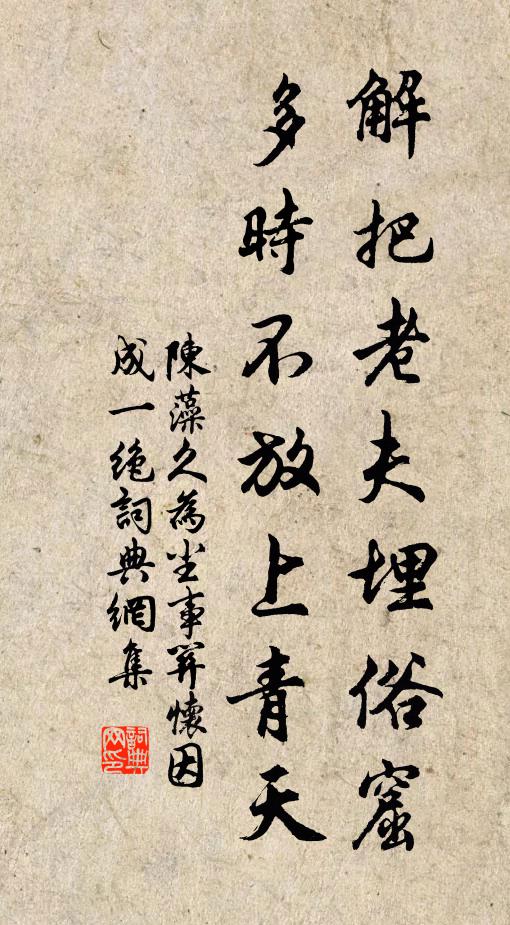 解把老夫埋俗窟
多時不放上青天
陳藻久為尘事羿懷因
成一絶詞典網集
詞典网印